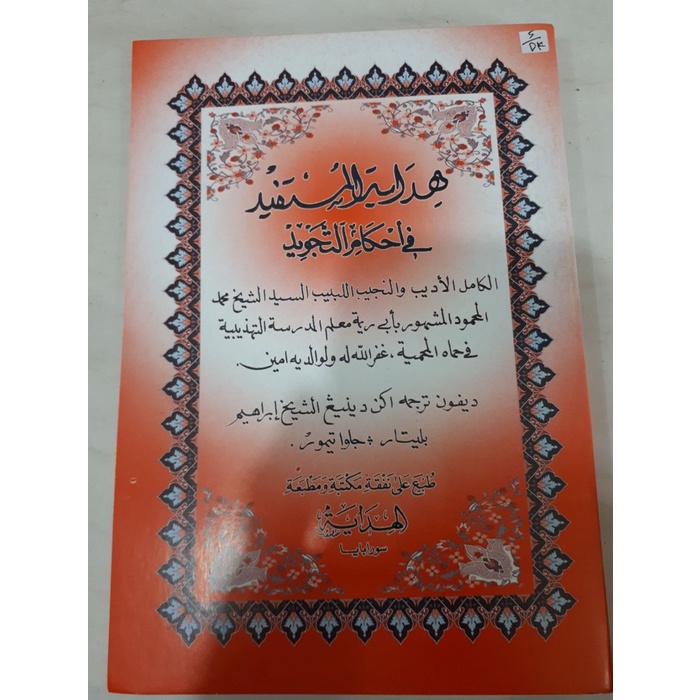 S/DK
هداية المستفيد
في أحكام التجويد
الكامل الأديب والنجيب اللبيب السيد الشيخ محمد
المحمود المشهور بأبى رية معلم المدرسة التهذيبية
في حماه المحمية، غفر الله له ولوالديه امين.
ديفون ترجمه اكن دينيڠ الشيخ إبراهيم
بليتار، جاوا تيمور.
طبع على نفقة مكتبة ومطبعة
الهداية
سورابايا